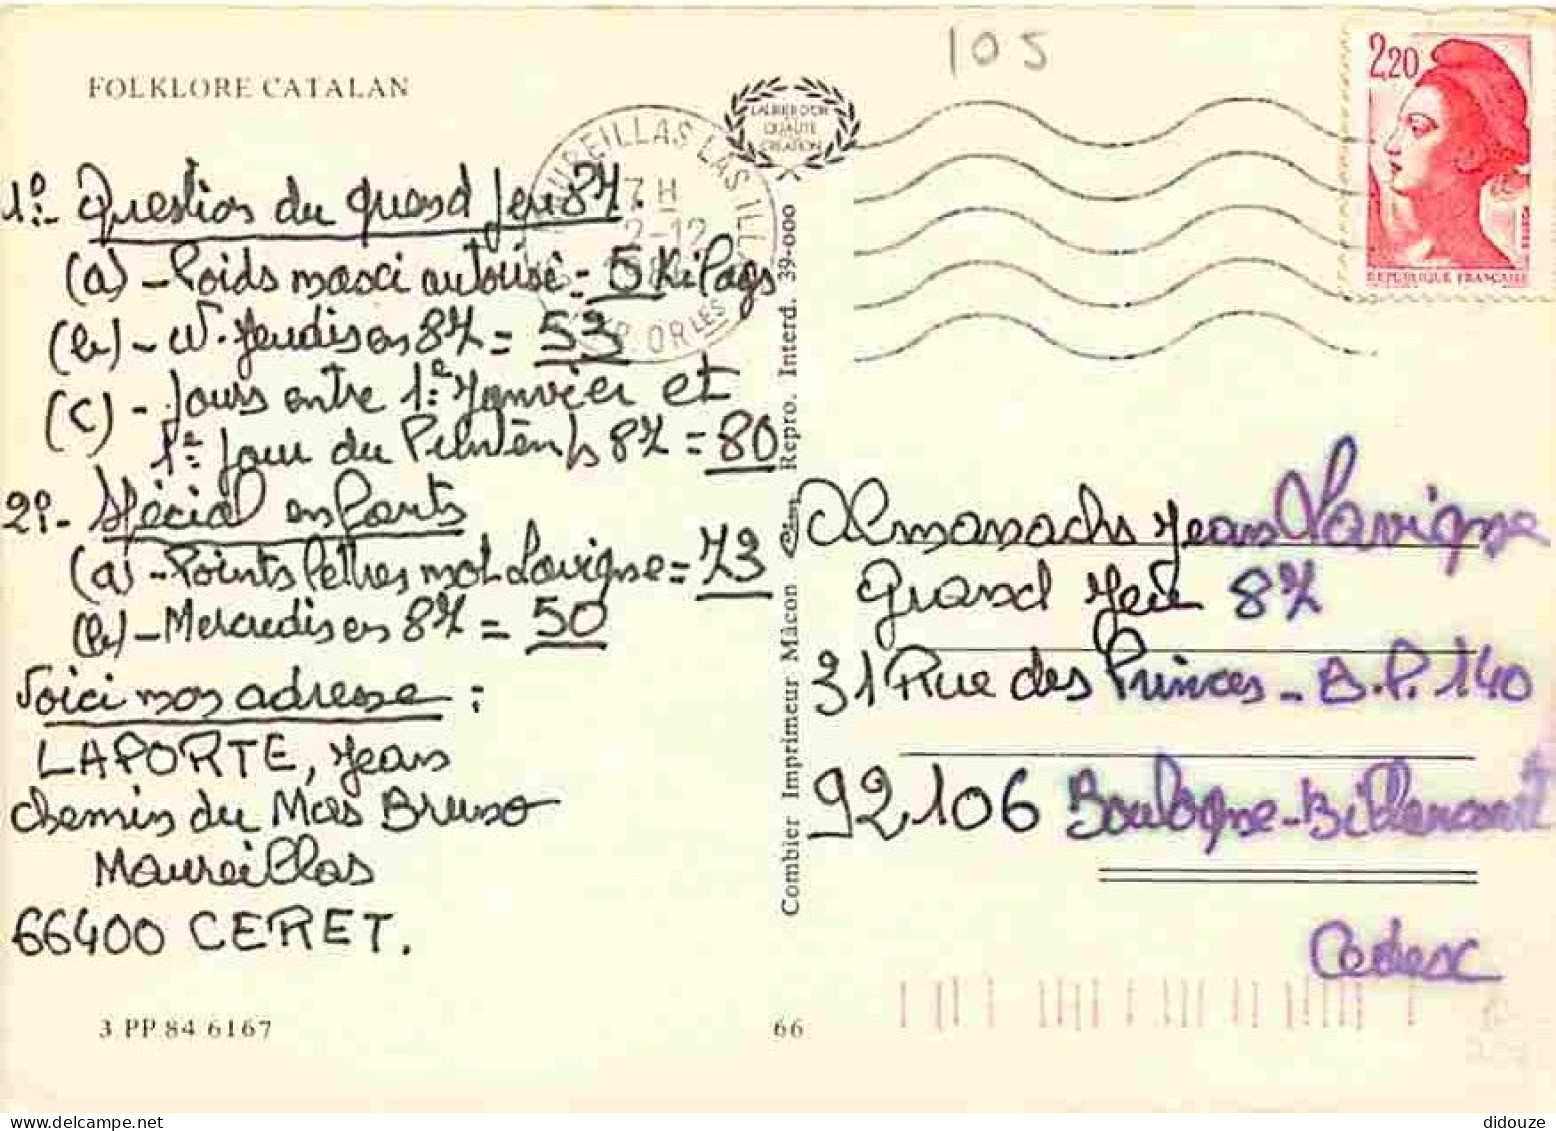 105
FOLKLORE CATALAN
LAURIER D'OR
QUALITE
CREATION
MAUREILLAS LAS ILLAS
7 H
2-12
PYR. ORLES
2,20
REPUBLIQUE FRANCAISE
1º- Question du grand jeu 87.
(a) - Poids maxi autorisé = 5 Kilogs
(b) - Jeudis en 87 = 53
(c) - Jours entre 1er Janvier et
1er jour du Printemps 87 = 80
2º- Spécial enfants
(a) - Points lettres mot Lavigne = 73
(b) - Mercredis en 87 = 50
Voici mon adresse :
LAPORTE, Jean
chemin du Mas Bruno
Maureillas
66400 CERET.
3 PP 84 6167
66
Combier Imprimeur Mâcon Repro. Interd. 39-000
Almanachs Jean Lavigne
Grand Jeu 87
31 Rue des Princes - B.P. 140
92.106 Boulogne-Billancourt
Cedex
didouze